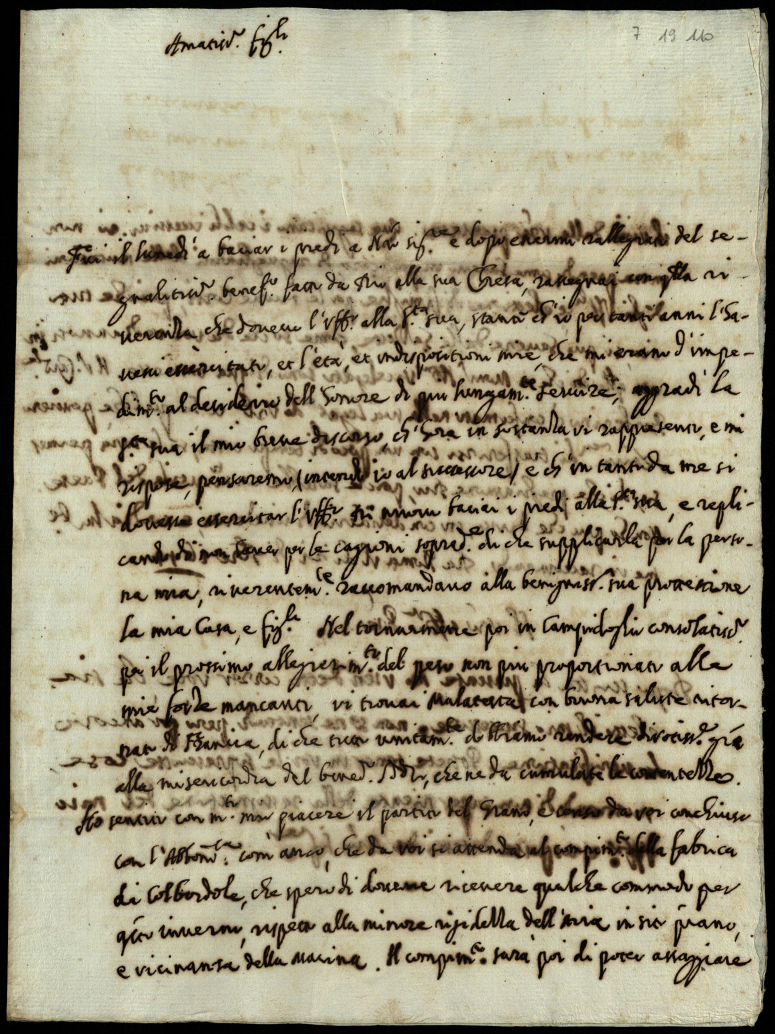 Amatis.mi fig.li
7 19 110
Fui il lunedì a baciar i piedi a N.ro Sig.re e dopo essermi rallegrato del se-
gnalatiss.o benef.o fatto da Dio alla sua Chiesa, rassegnai con q.lla ri-
verenza che dovevo l'uff.o alla S.tà sua, stante ch'io per tanti anni l'ha-
vessi essercitato, et l'età, et indispositioni mie, che mi erano d'impe-
dim.to al desiderio dell'honore di più lungam.te servire; aggradì la
S.tà sua il mio breve discorso, ch'hora in sostanza vi rappresento, e mi
rispose, pensaremo (intend. io al successore) e ch'in tanto da me si
dovesse essercitar l'uff.o Di nuovo baciai i piedi alla S.tà sua, e repli-
cando di non poter per le cagioni soprad.e di che supplicavla per la perso-
na mia, riverentem.te raccomandavo alla benigniss.a sua protettione
la mia Casa, e fig.li Nel tornarmene poi in Campidoglio consolatiss.o
per il prossimo allegierim.to del peso non più proportionato alle
mie forze mancanti, vi trovai Malatesta con buona salute ritor-
nato di Francia, di che tutti unitam.te dobbiamo rendere divotiss.e gr.e
alla misericordia del bened.o Iddio, che ne da cumulate le contentezze.
Ho sentito con m.to mio piacere il partito del Grano, e censo da voi conchiuso
con l'Abbon.za com'anco, che da voi si attenda al compim.to della fabrica
di Colbordole, che spero di dovene ricevere qualche commodo per
q.to inverno, rispetto alla minore rigidezza dell'Aria in sito piano,
e vicinanza della Marina. Il compim.to sarà poi di poter assaggiare